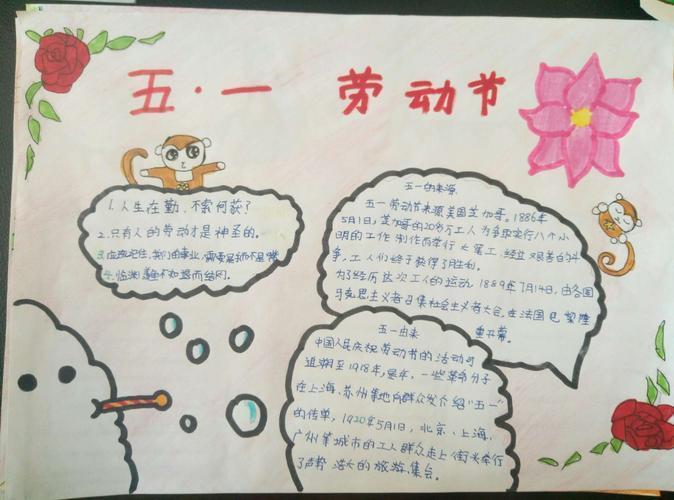 五·一 劳动节
1.人生在勤,不索何获?
2.只有人的劳动才是神圣的。
3.应该记住,我们的事业,需要是手而不是嘴
4.临渊羡鱼不如退而结网。
五一的来源
五一劳动节来源美国芝加哥。1886年
5月1日,芝加哥的20多万工人为争取实行八个小
时的工作制作而举行大罢工,经过艰苦的斗
争,工人们终于获得了胜利。
为了经历这次工人的运动,1889年7月14日,由各国
马克思主义者召集社会主义者大会,在法国巴黎隆
重开幕。
五一由来
中国人民庆祝劳动节的活动可
追溯至1918年,是年,一些革命分子
在上海、苏州等地向群众发介绍"五一"
的传单,1920年5月1日,北京、上海、
广州等城市的工人群众走上街头举行
了声势浩大的旅游、集会。